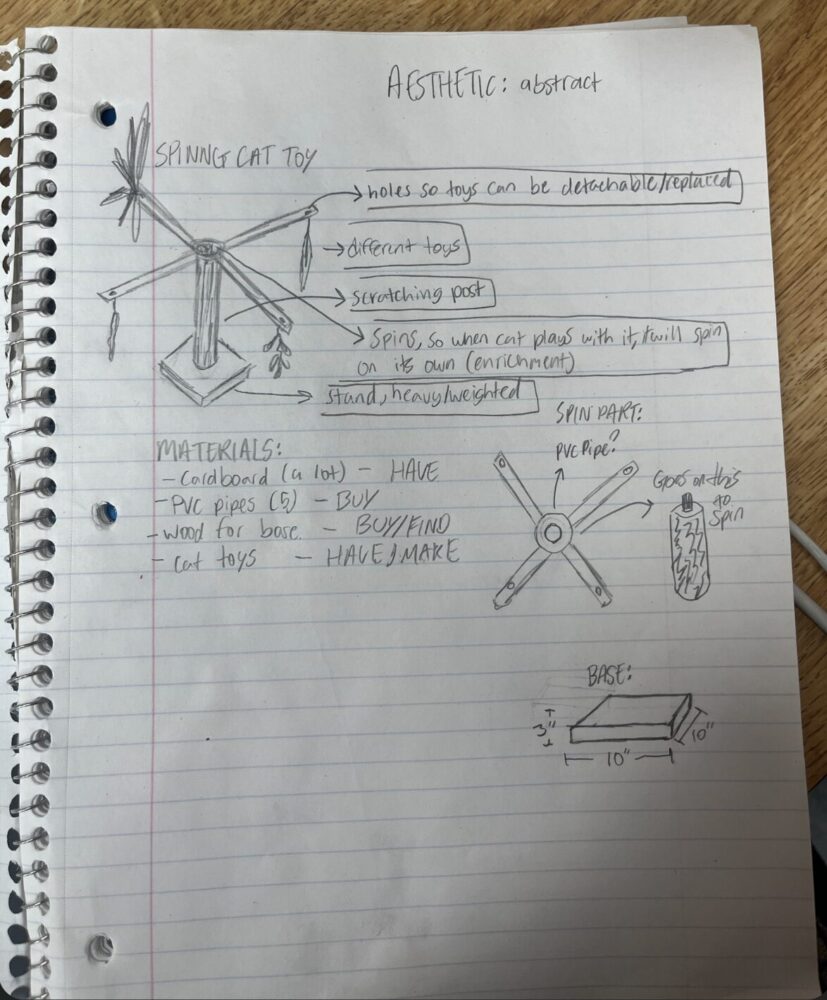 AESTHETIC: abstract
SPINNG CAT TOY
holes so toys can be detachable/replaced
different toys
scratching post
spins, so when cat plays with it, it will spin
on its own (enrichment)
stand, heavy/weighted
MATERIALS:
- Cardboard (a lot) - HAVE
- PVC pipes (5) - BUY
- wood for base - BUY/FIND
- cat toys - HAVE/MAKE
SPIN PART:
PVC Pipe?
Goes on this
to
spin
BASE:
3"
10"
10"